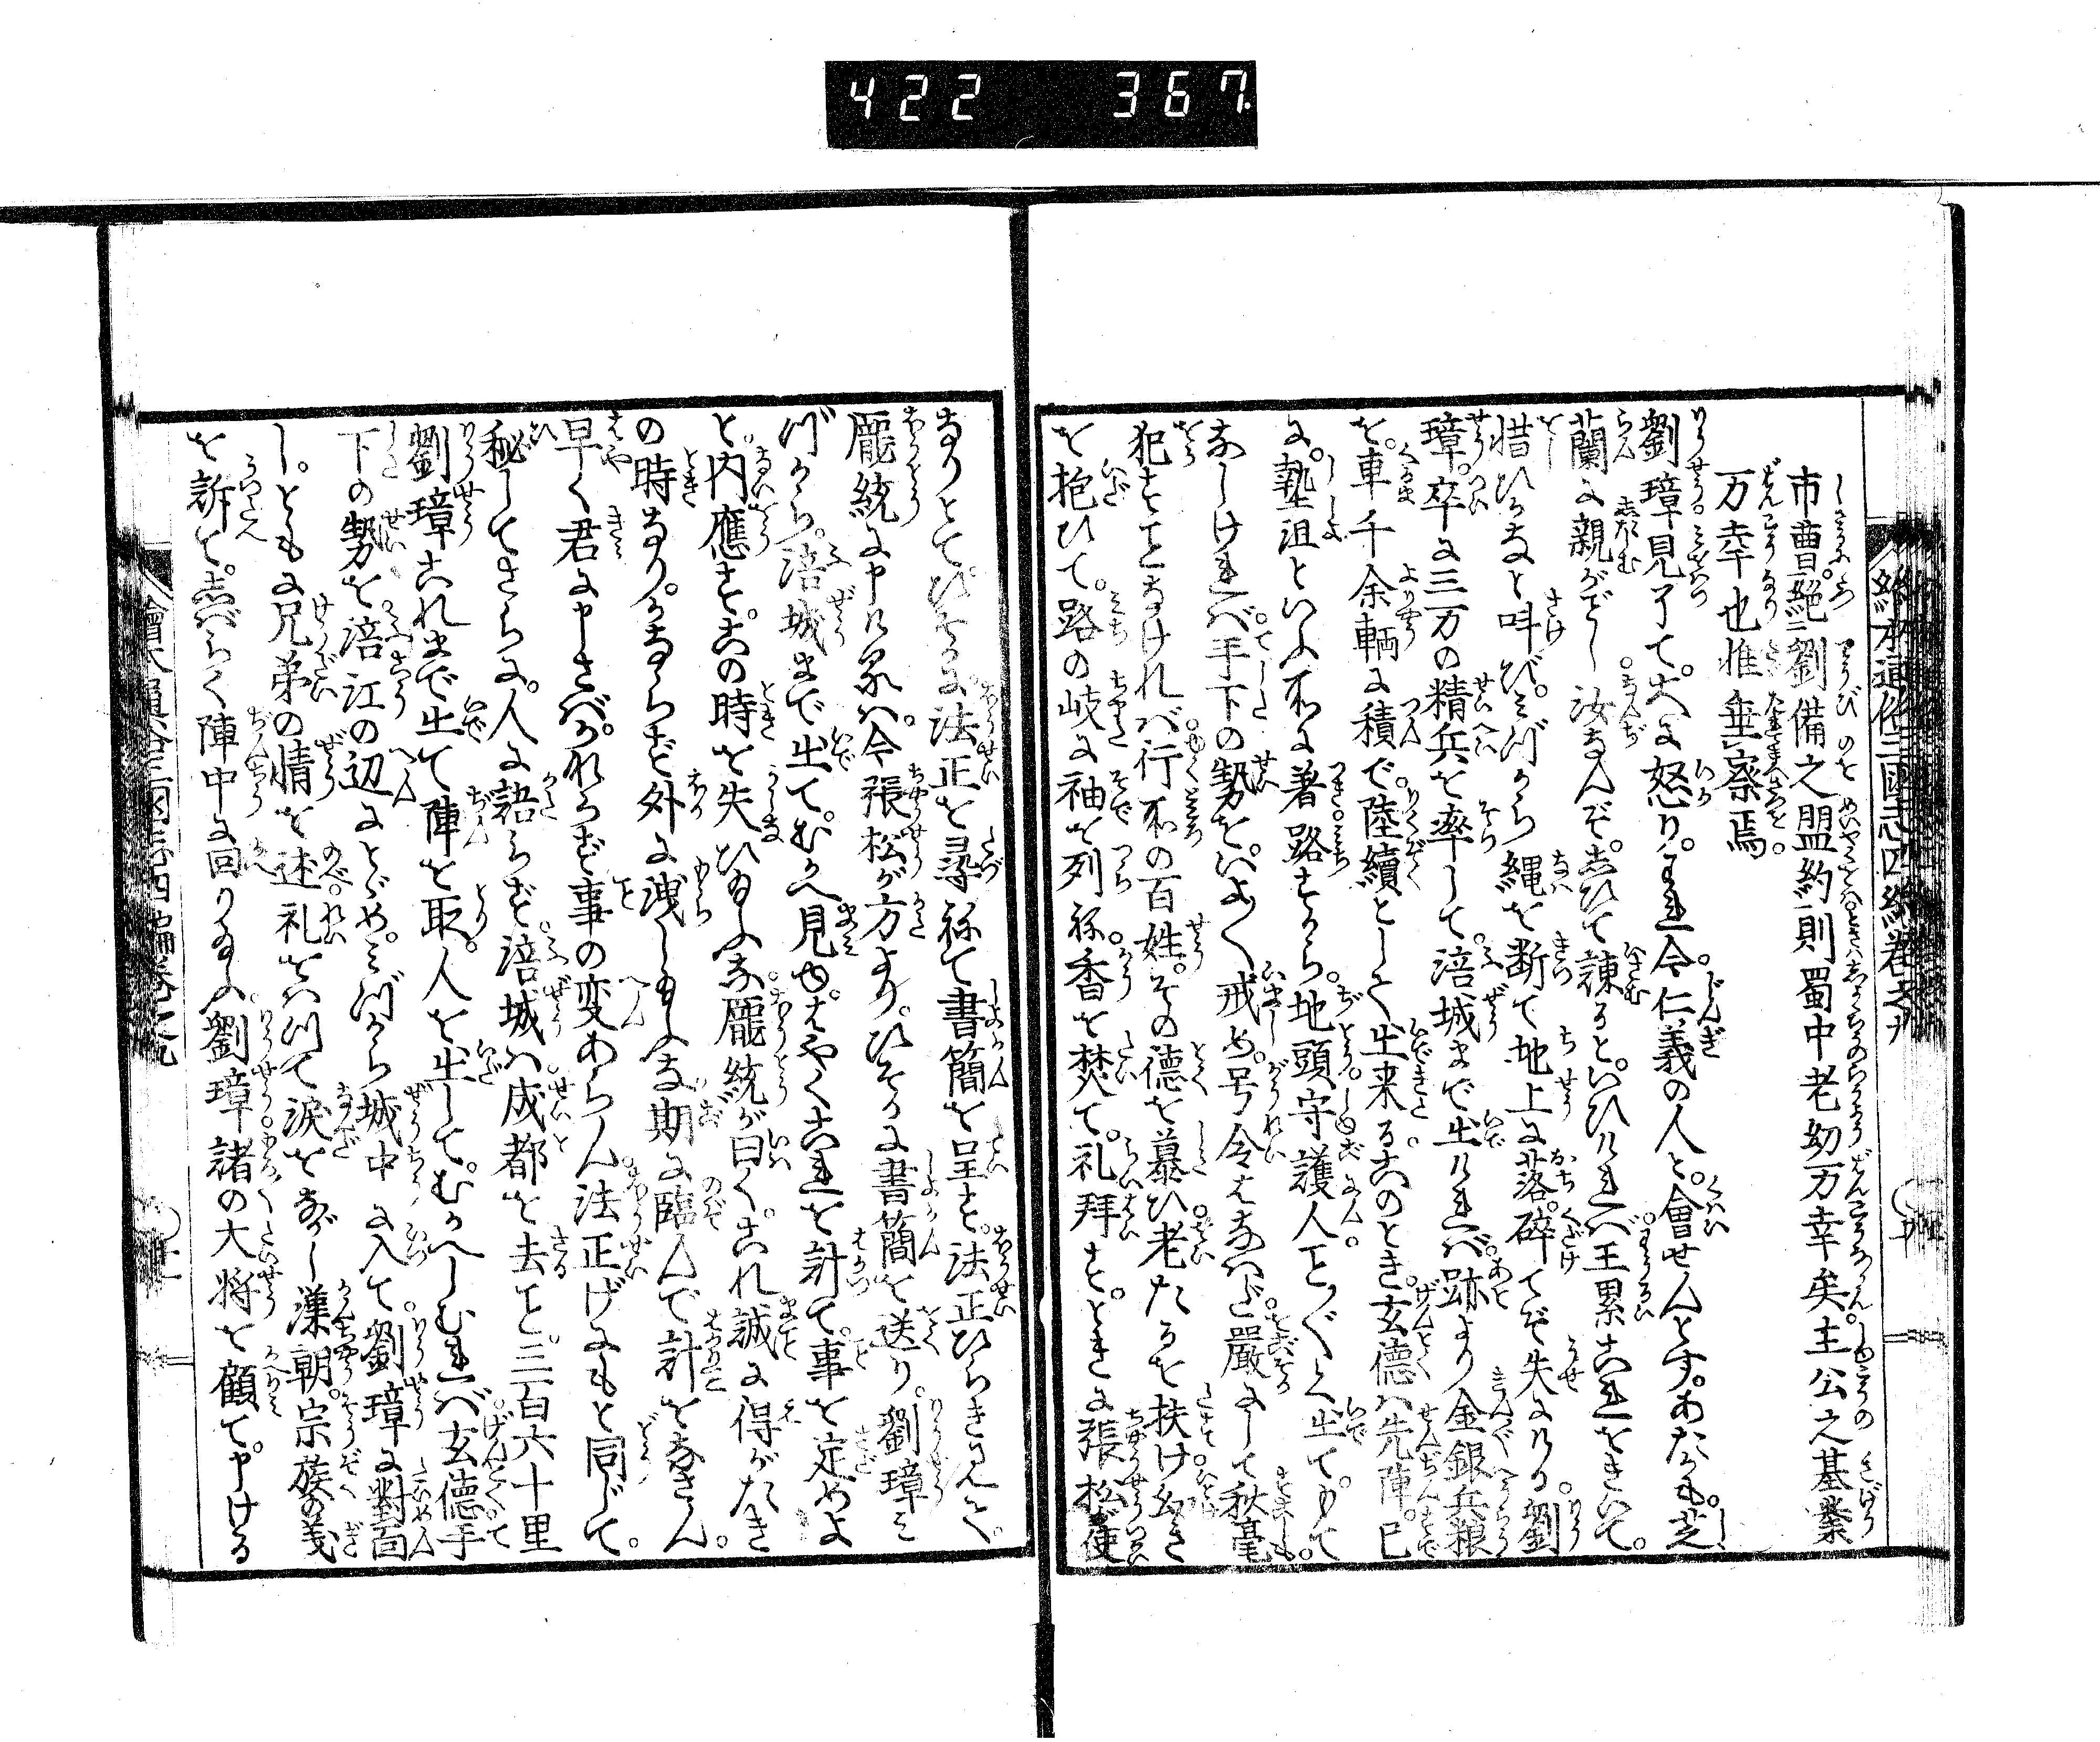 422 367
市曹絕劉備之盟約則蜀中老幼万幸矣主公之基業
万幸也惟垂察焉
劉璋見了て。大に怒り。われ今仁義の人と。會せんとす。あたかも。芝
蘭に親がごとし汝なんぞ。しひて諫ると。いひければ王累これをきいて。
惜ひかなと叫び。みづから縄を断て地上に落。碎てぞ失にける。劉
璋。卒に三万の精兵を率して。涪城まで出ければ。跡より金銀兵粮
を。車千余輌に積で。陸續として出来る。このとき。玄德は先陣。已
に。墊沮といふ所に著。路すから。地頭守護人。ことごとく出て。
なしければ。手下の勢を。いよ〱戒め。号令をなへど。嚴にして秋毫
犯すことなければ。行所の百姓。その德を慕ひ。老たるを扶け幼き
を抱ひて。路の岐に袖を列ね。香を焚て。礼拜す。ときに張松使
なりとて。ひそかに法正を尋ねて書簡を呈す。法正ひらきみて。
龐統に申けるは。今張松が方より。ひそかに書簡を送り。劉璋み
づから。涪城まで出て。むかへ見ゆ。はやくこれを計て。事を定めよ
と。内應す。この時を失ひ給ふな。龐統が曰く。これ誠に得がたき
の時なり。かならず外に洩し給ふな期に臨んで計をなさん。
早く君に申さば。かならず事の変あらん。法正げにもと同じて。
秘してさらに。人に語らず。涪城は。成都を去こと。三百六十里
劉璋これまで出て陣を取。人を出して。むかへしむれば。玄德手
下の勢を。涪江の辺にとゞめ。みづから城中に入て。劉璋に對面
し。ともに兄弟の情を述。礼をはつて涙をながし漢朝。宗族の義
を訴て。しばらく陣中に回り給ふ。劉璋諸の大将を顧て。申ける